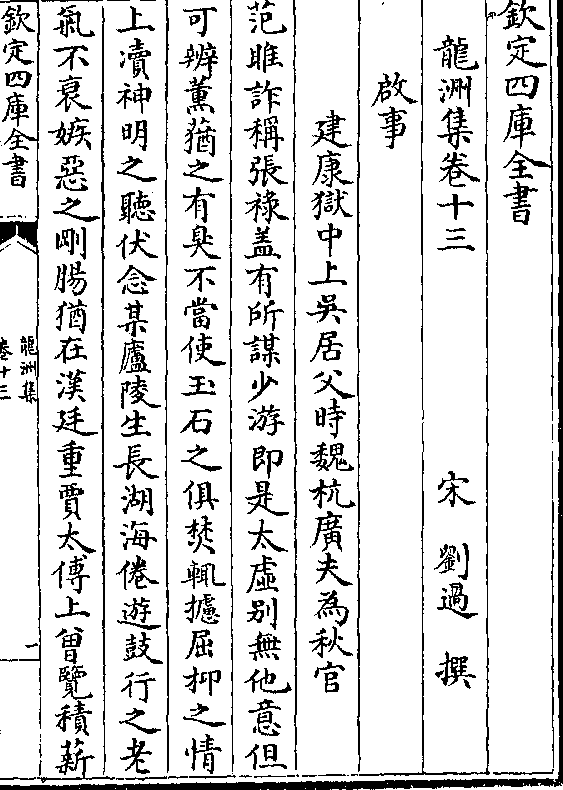 欽定四庫全書
龍洲集卷十三
宋 劉過 撰
啟事
建康獄中上吳居父時魏杭廣夫為秋官
范雎詐稱張祿盖有所謀少游即是太虛别無他意但
可辨薰蕕之有臭不當使玉石之俱焚輒攄屈抑之情
上瀆神明之聽伏念某廬陵生長湖海倦遊鼓行之老
氣不衰嫉惡之剛腸猶在漢廷重賈太傅上曾覽積薪
欽定四庫全書
龍洲集
卷十三
一